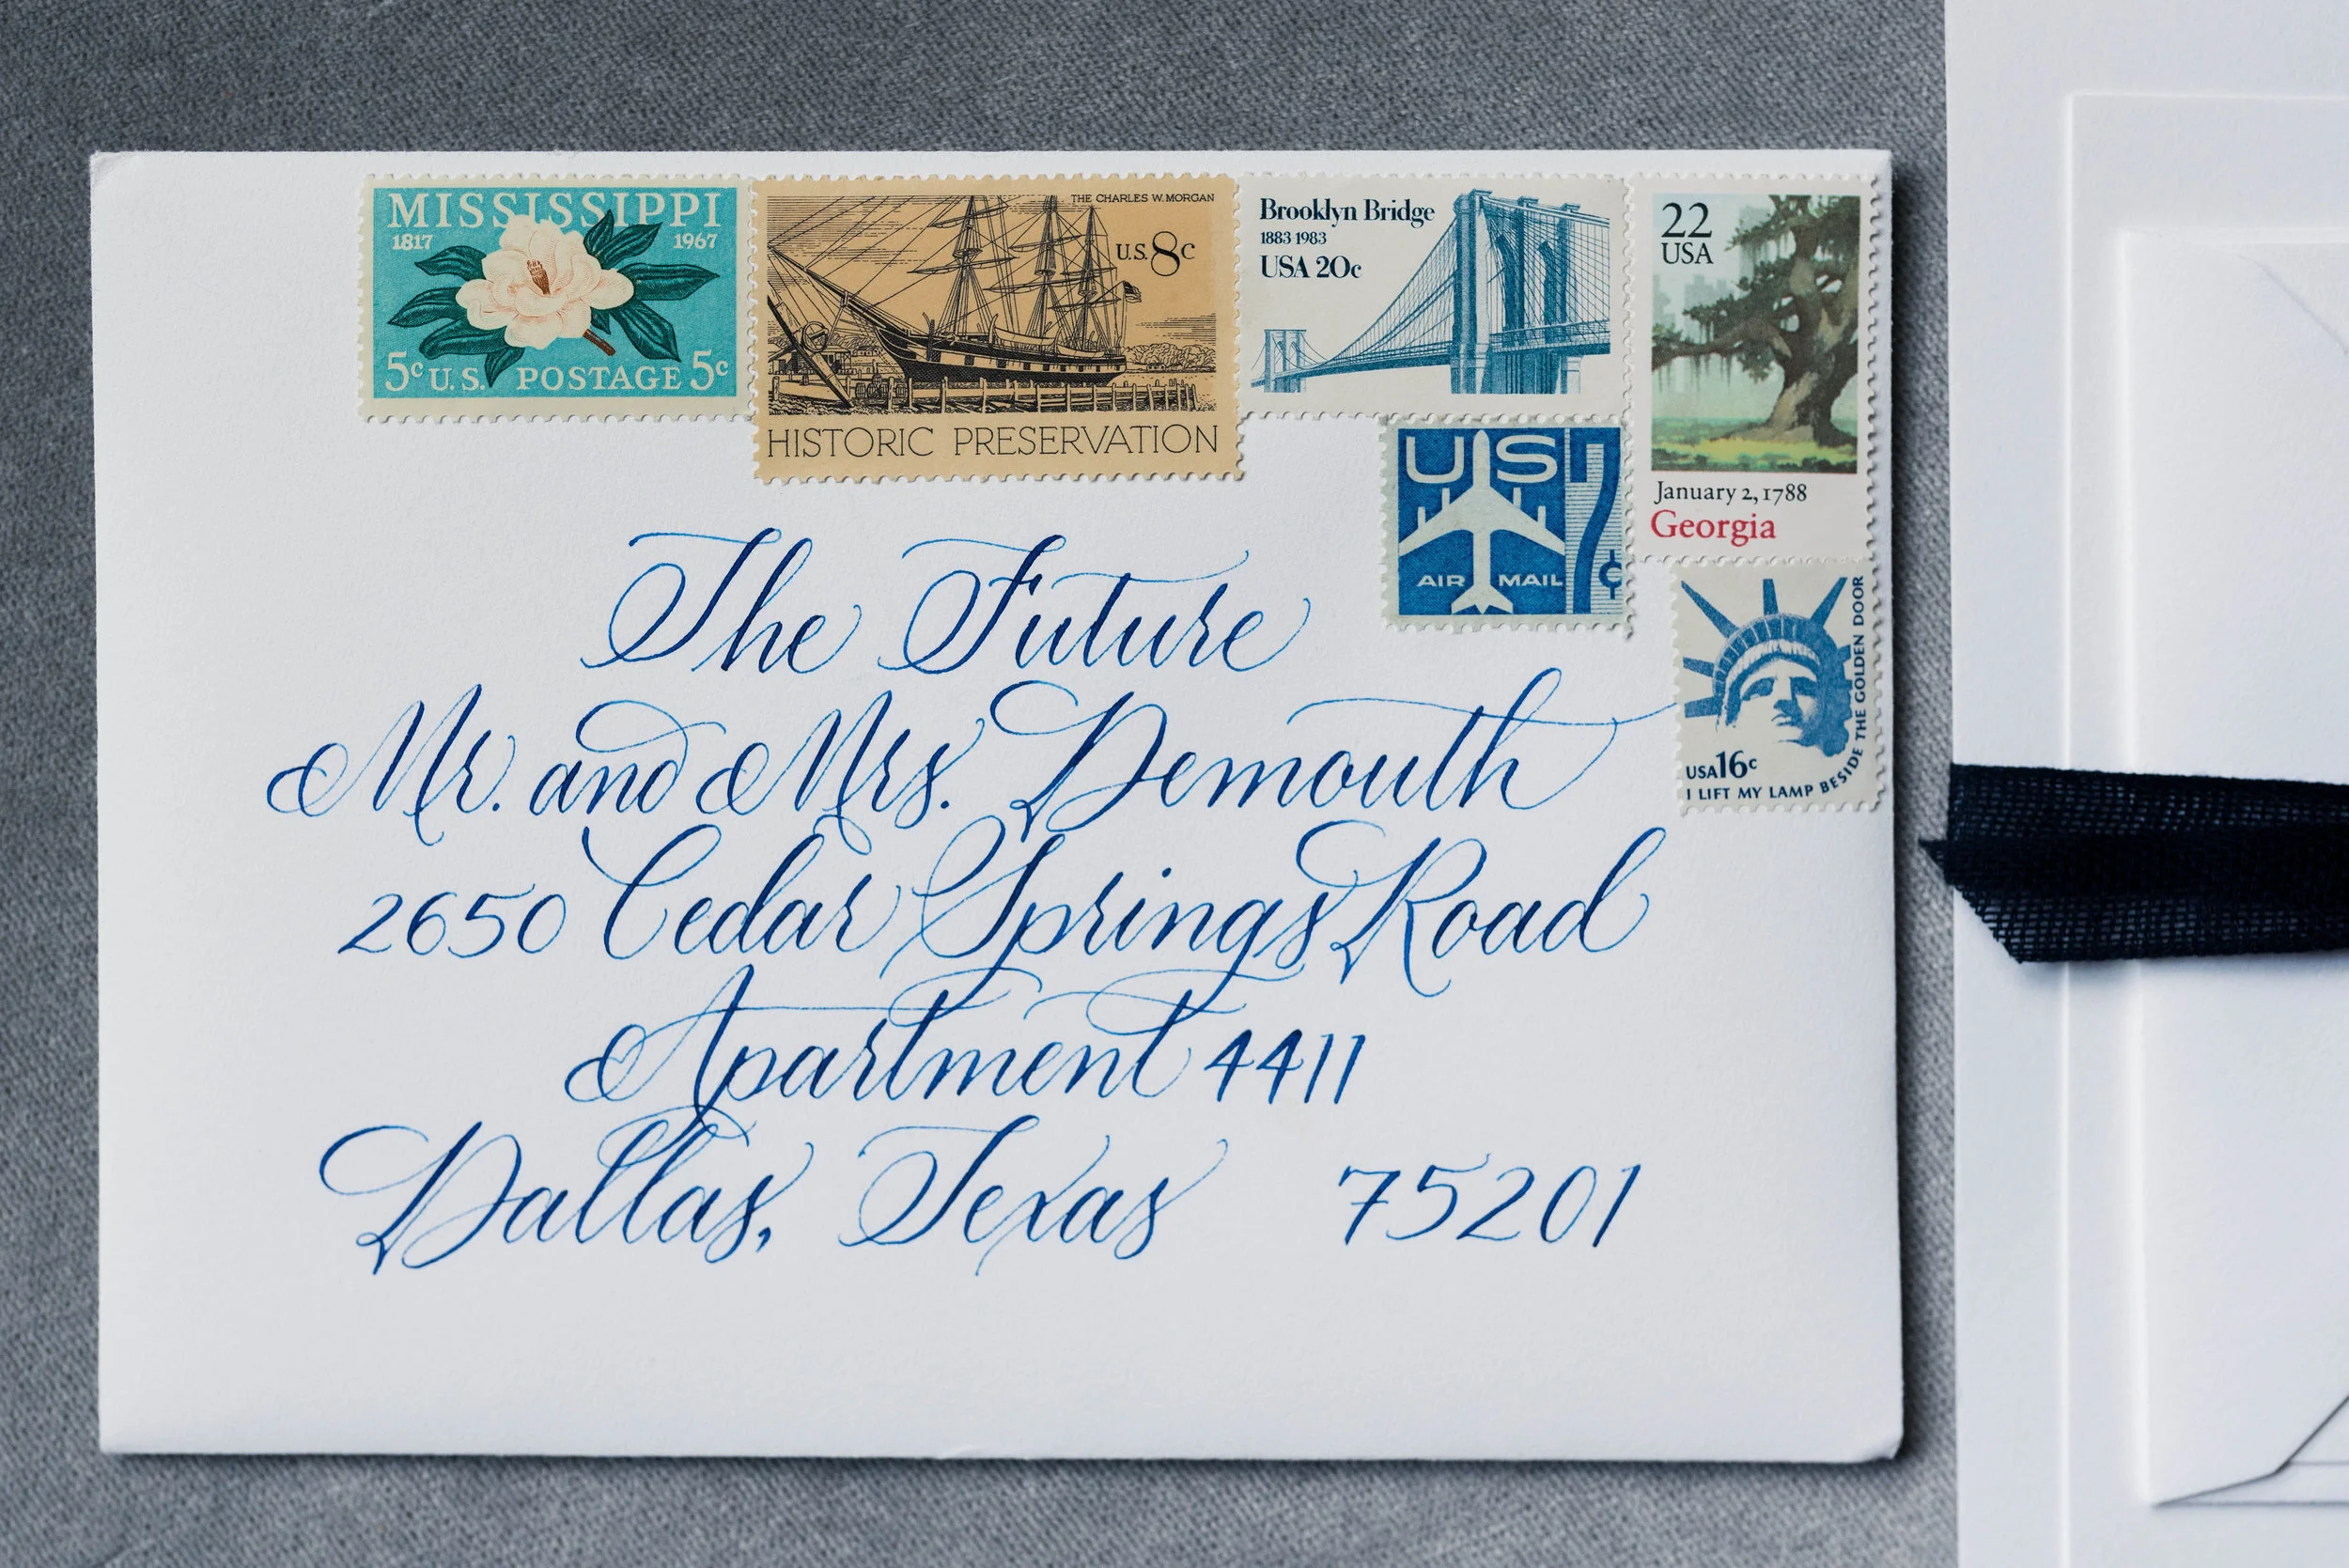 MISSISSIPPI
1817 1967
5c U.S. POSTAGE 5c
THE CHARLES W. MORGAN
U.S. 8c
HISTORIC PRESERVATION
Brooklyn Bridge
1883 1983
USA 20c
22
USA
January 2, 1788
Georgia
US 7c
AIR MAIL
USA 16c
I LIFT MY LAMP BESIDE THE GOLDEN DOOR
The Future
Mr. and Mrs. Demouth
2650 Cedar Springs Road
Apartment 4411
Dallas, Texas 75201